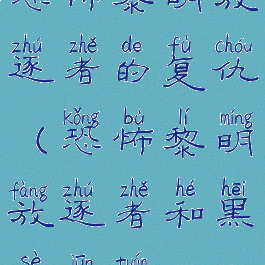 恐怖黎明放
zhú zhě de fù chóu
逐者的复仇
kǒng bù lí míng
（恐怖黎明
fàng zhú zhě hé hēi
放逐者和黑
sè jūn tuán